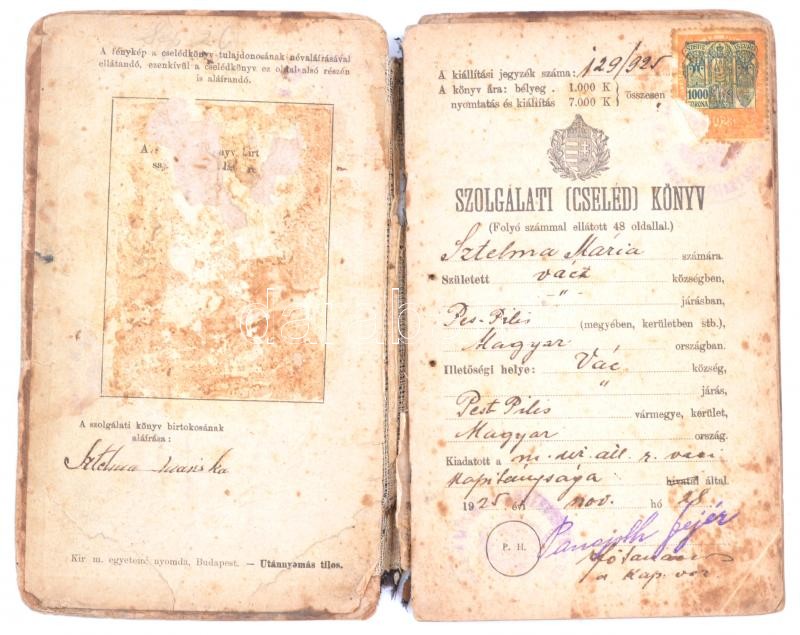 A fénykép a cselédkönyv tulajdonosának névaláírásával
ellátandó, ezenkívül a cselédkönyv ez oldal alsó részén
is aláirandó.
A szolgálati könyv birtokosának
aláírása:
Sztelma Mariska
Kir. m. egyetemi nyomda, Budapest. — Utánnyomás tilos.
A kiállítási jegyzék száma: 129/925
A könyv ára: bélyeg . 1.000 K
nyomtatás és kiállítás 7.000 K
összesen
1000
KORONA
1923
SZOLGÁLATI (CSELÉD) KÖNYV
(Folyó számmal ellátott 48 oldallal.)
Sztelma Mária számára.
Született Vácz községben,
-"- járásban,
Pes-Pilis (megyében, kerületben stb.),
Magyar országban.
Illetőségi helye: Vác község,
" járás,
Pest Pilis vármegye, kerület,
Magyar ország.
Kiadatott a m. kir. áll. r. vaci
kapitánysága hivatal által.
1925 évi nov. hó 28
P. H.